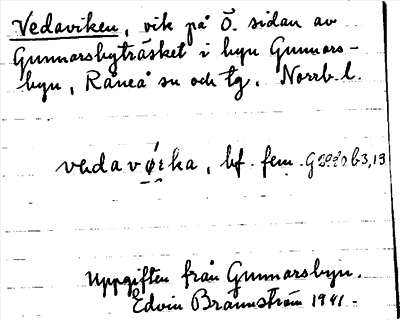 Vedaviken, vik på Ö. sidan av
Gunnarsbyträsket i byn Gunnars-
byn, Råneå sn och tg. Norrb. l.
vedavøi̯ka, bf. fem.
Uppgiften från Gunnarsbyn.
Edvin Brännström 1941.-